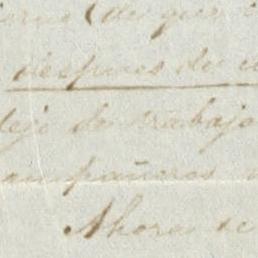 (de que
despues de
dejo de trabajo
compañeros
Ahora se